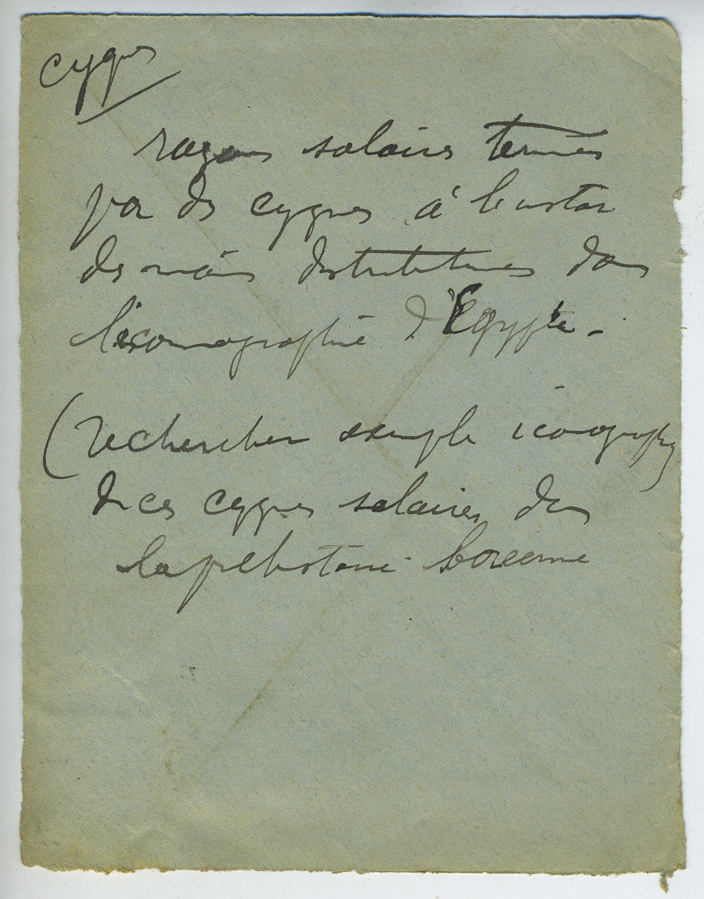 cygnes
rayons solaires terminés
par des cygnes à l'instar
de mains distributrices dans
l'iconographie d'Égypte -
(rechercher exemple iconographie)
de ces cygnes solaires dans
la préhistoire boréenne